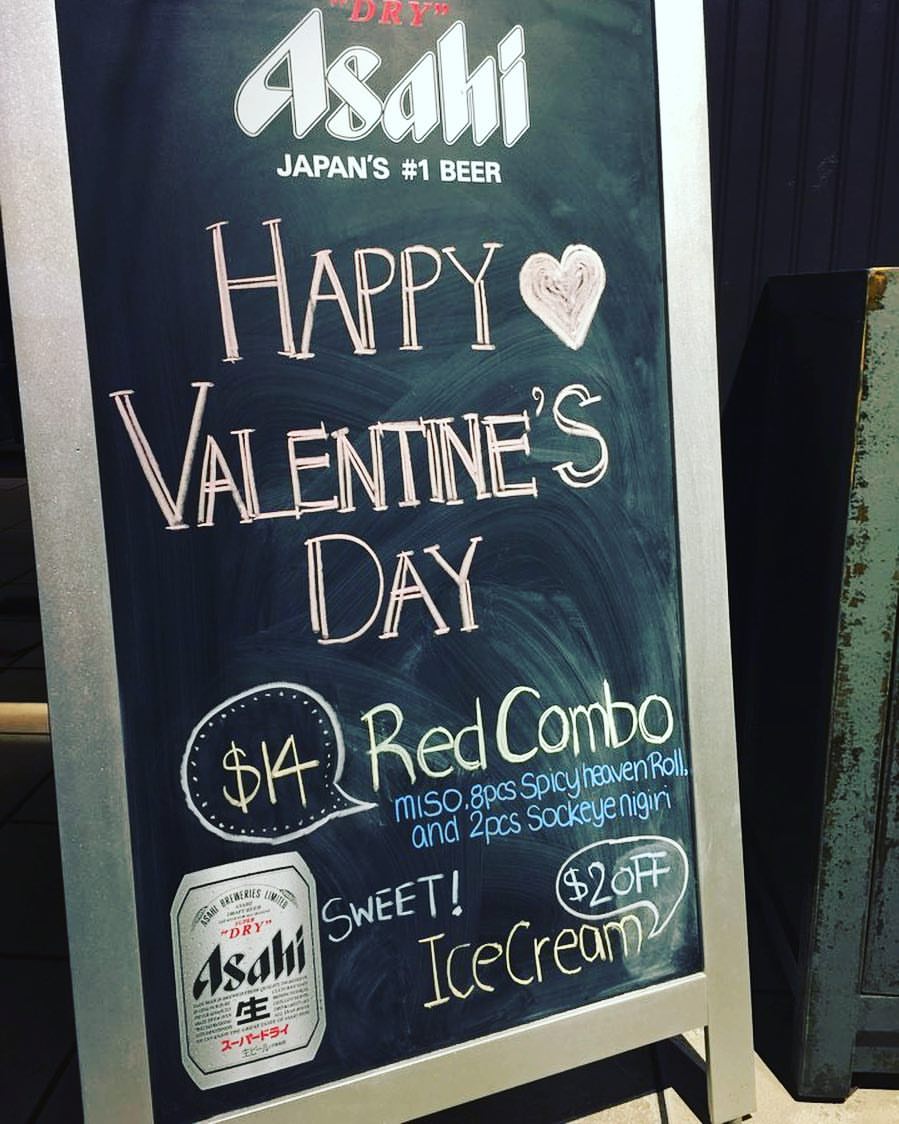 "DRY"
Asahi
JAPAN'S #1 BEER
HAPPY
VALENTINE'S
DAY
$14
Red Combo
MISO, 8pcs Spicy heaven Roll,
and 2pcs Sockeye nigiri
$2 OFF
SWEET!
Ice Cream
ASAHI BREWERIES LIMITED
ASAHI
DRAFT BEER
SUPER
"DRY"
Asahi
生
スーパードライ
生ビール